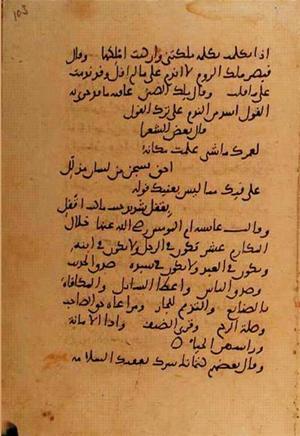 103
اذا تكلمت بكلمه ملكتني وان هي املكها وقال
قيصر ملك الروم لا اندم على ما لم اقل وقد ندمت
على ما قلت وقال ملك الصين عاقبه ما
القول اشد من الندم على ترك القول
قال بعض الشعرا
لعمرك ما شي علمت مكانه
احق بسجن من لسان مذلل
على فيك مما ليس يعنيك قوله
بقفل شديد حيث ما كنت اقفل
وقالت عايشه ام المومنين رضي الله عنها خلال
المكارم عشر تكون في الرجل ولا تكون في ابنه
وتكون في العبد ولا تكون في سيده صدق الحديث
وصدق الناس واعطا السايل والمكافاه
بالصنايع والتذمم للجار ومراعاه حق الصاحب
وصله الرحم وقرى الضيف واداء الامانه
وراسهن الحياء
وقال بعضهم كتمانك سرك يعقبك السلامه